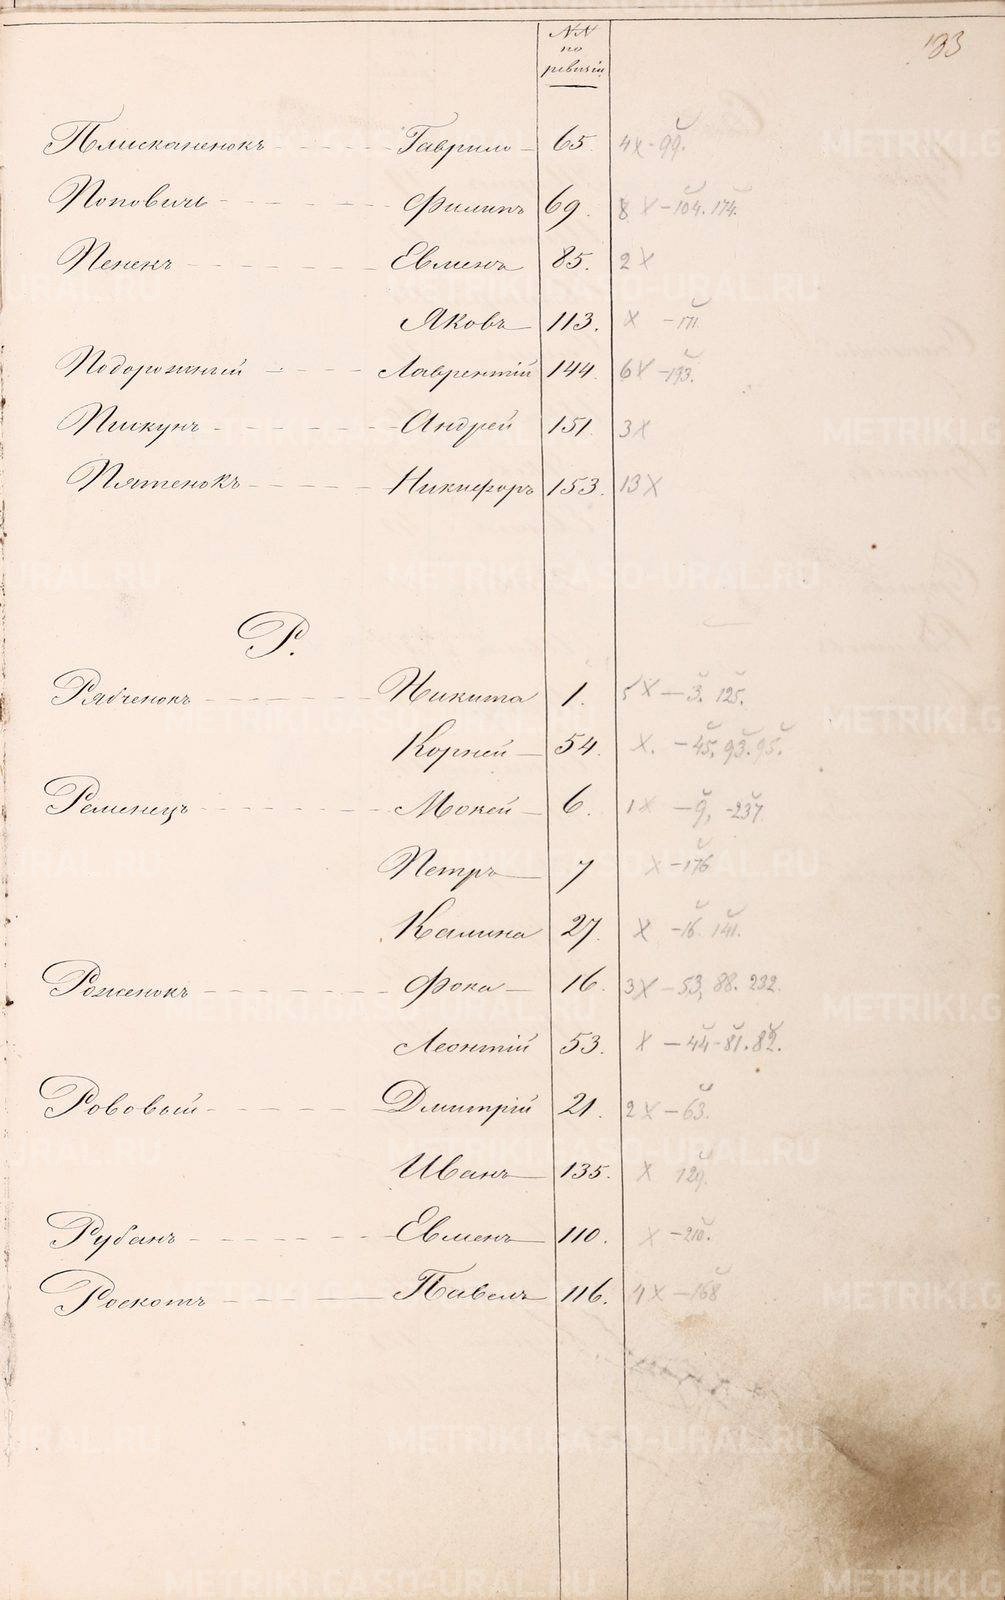 133
NN
по
ревизіи
Плискаченокъ Гаврило 65. 4 X - 99.
Поповичъ Филипъ 69. 8 X - 104. 174.
Пенекъ Евменъ 85. 2 X
Яковъ 113. X - 171.
Подорожный Лаврентій 144. 6 X - 193.
Пшкунъ Андрей 151. 3 X
Пятенокъ Никифоръ 153. 13 X
Р.
Рябченокъ Никита 1. 5 X - 3. 125.
Корней 54. X. - 45. 93. 95.
Ременецъ Мокей 6. 1 X - 9, - 237.
Петръ 7 X - 176
Калина 27. X - 16. 141.
Роженокъ Фока 16. 3 X - 53, 88. 232.
Леонтій 53. X - 44 - 81. 82.
Рововый Дмитрій 21. 2 X - 63.
Иванъ 135. X 129.
Рубанъ Евменъ 110. X - 210.
Роскотъ Павелъ 116. 4 X - 168
METRIKI.GASO-URAL.RU